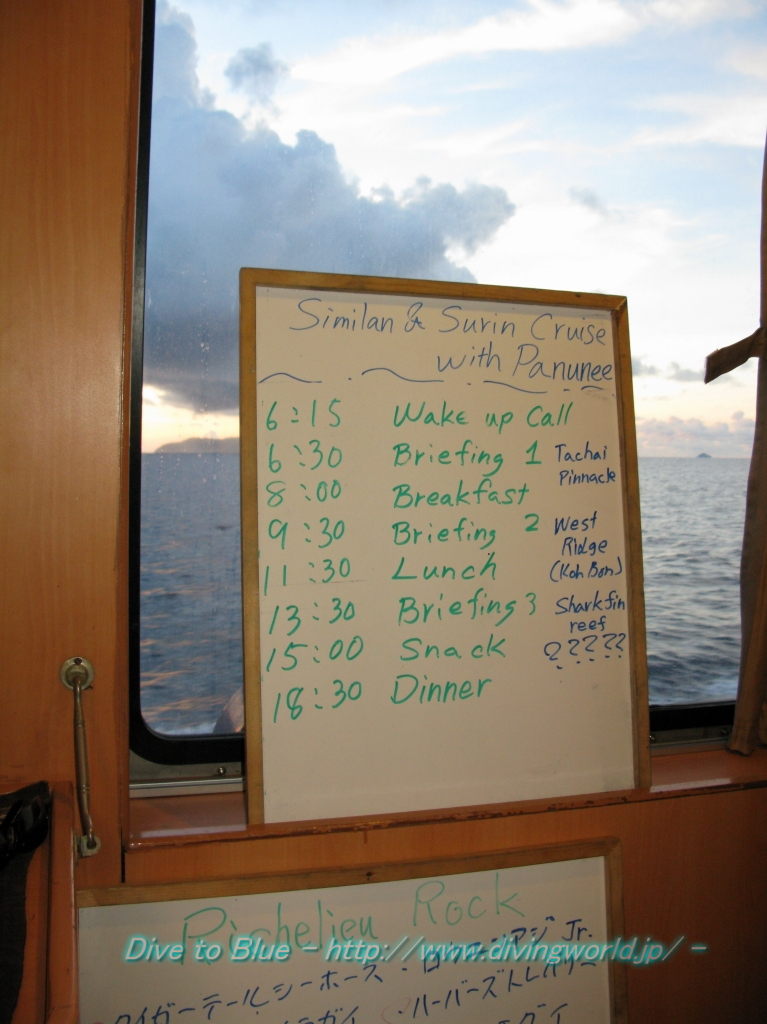 Similan & Surin Cruise
with Panunee
6:15 Wake up Call
6:30 Briefing 1 Tachai
Pinnacle
8:00 Breakfast
9:30 Briefing 2 West
Ridge
11:30 Lunch (Koh Bon)
13:30 Briefing 3 Sharkfin
reef
15:00 Snack ?????
18:30 Dinner
Richelieu Rock
Dive to Blue - http://www.divingworld.jp/ -
アジ Jr.
タイガーテールシーホース
・ハーバーズ